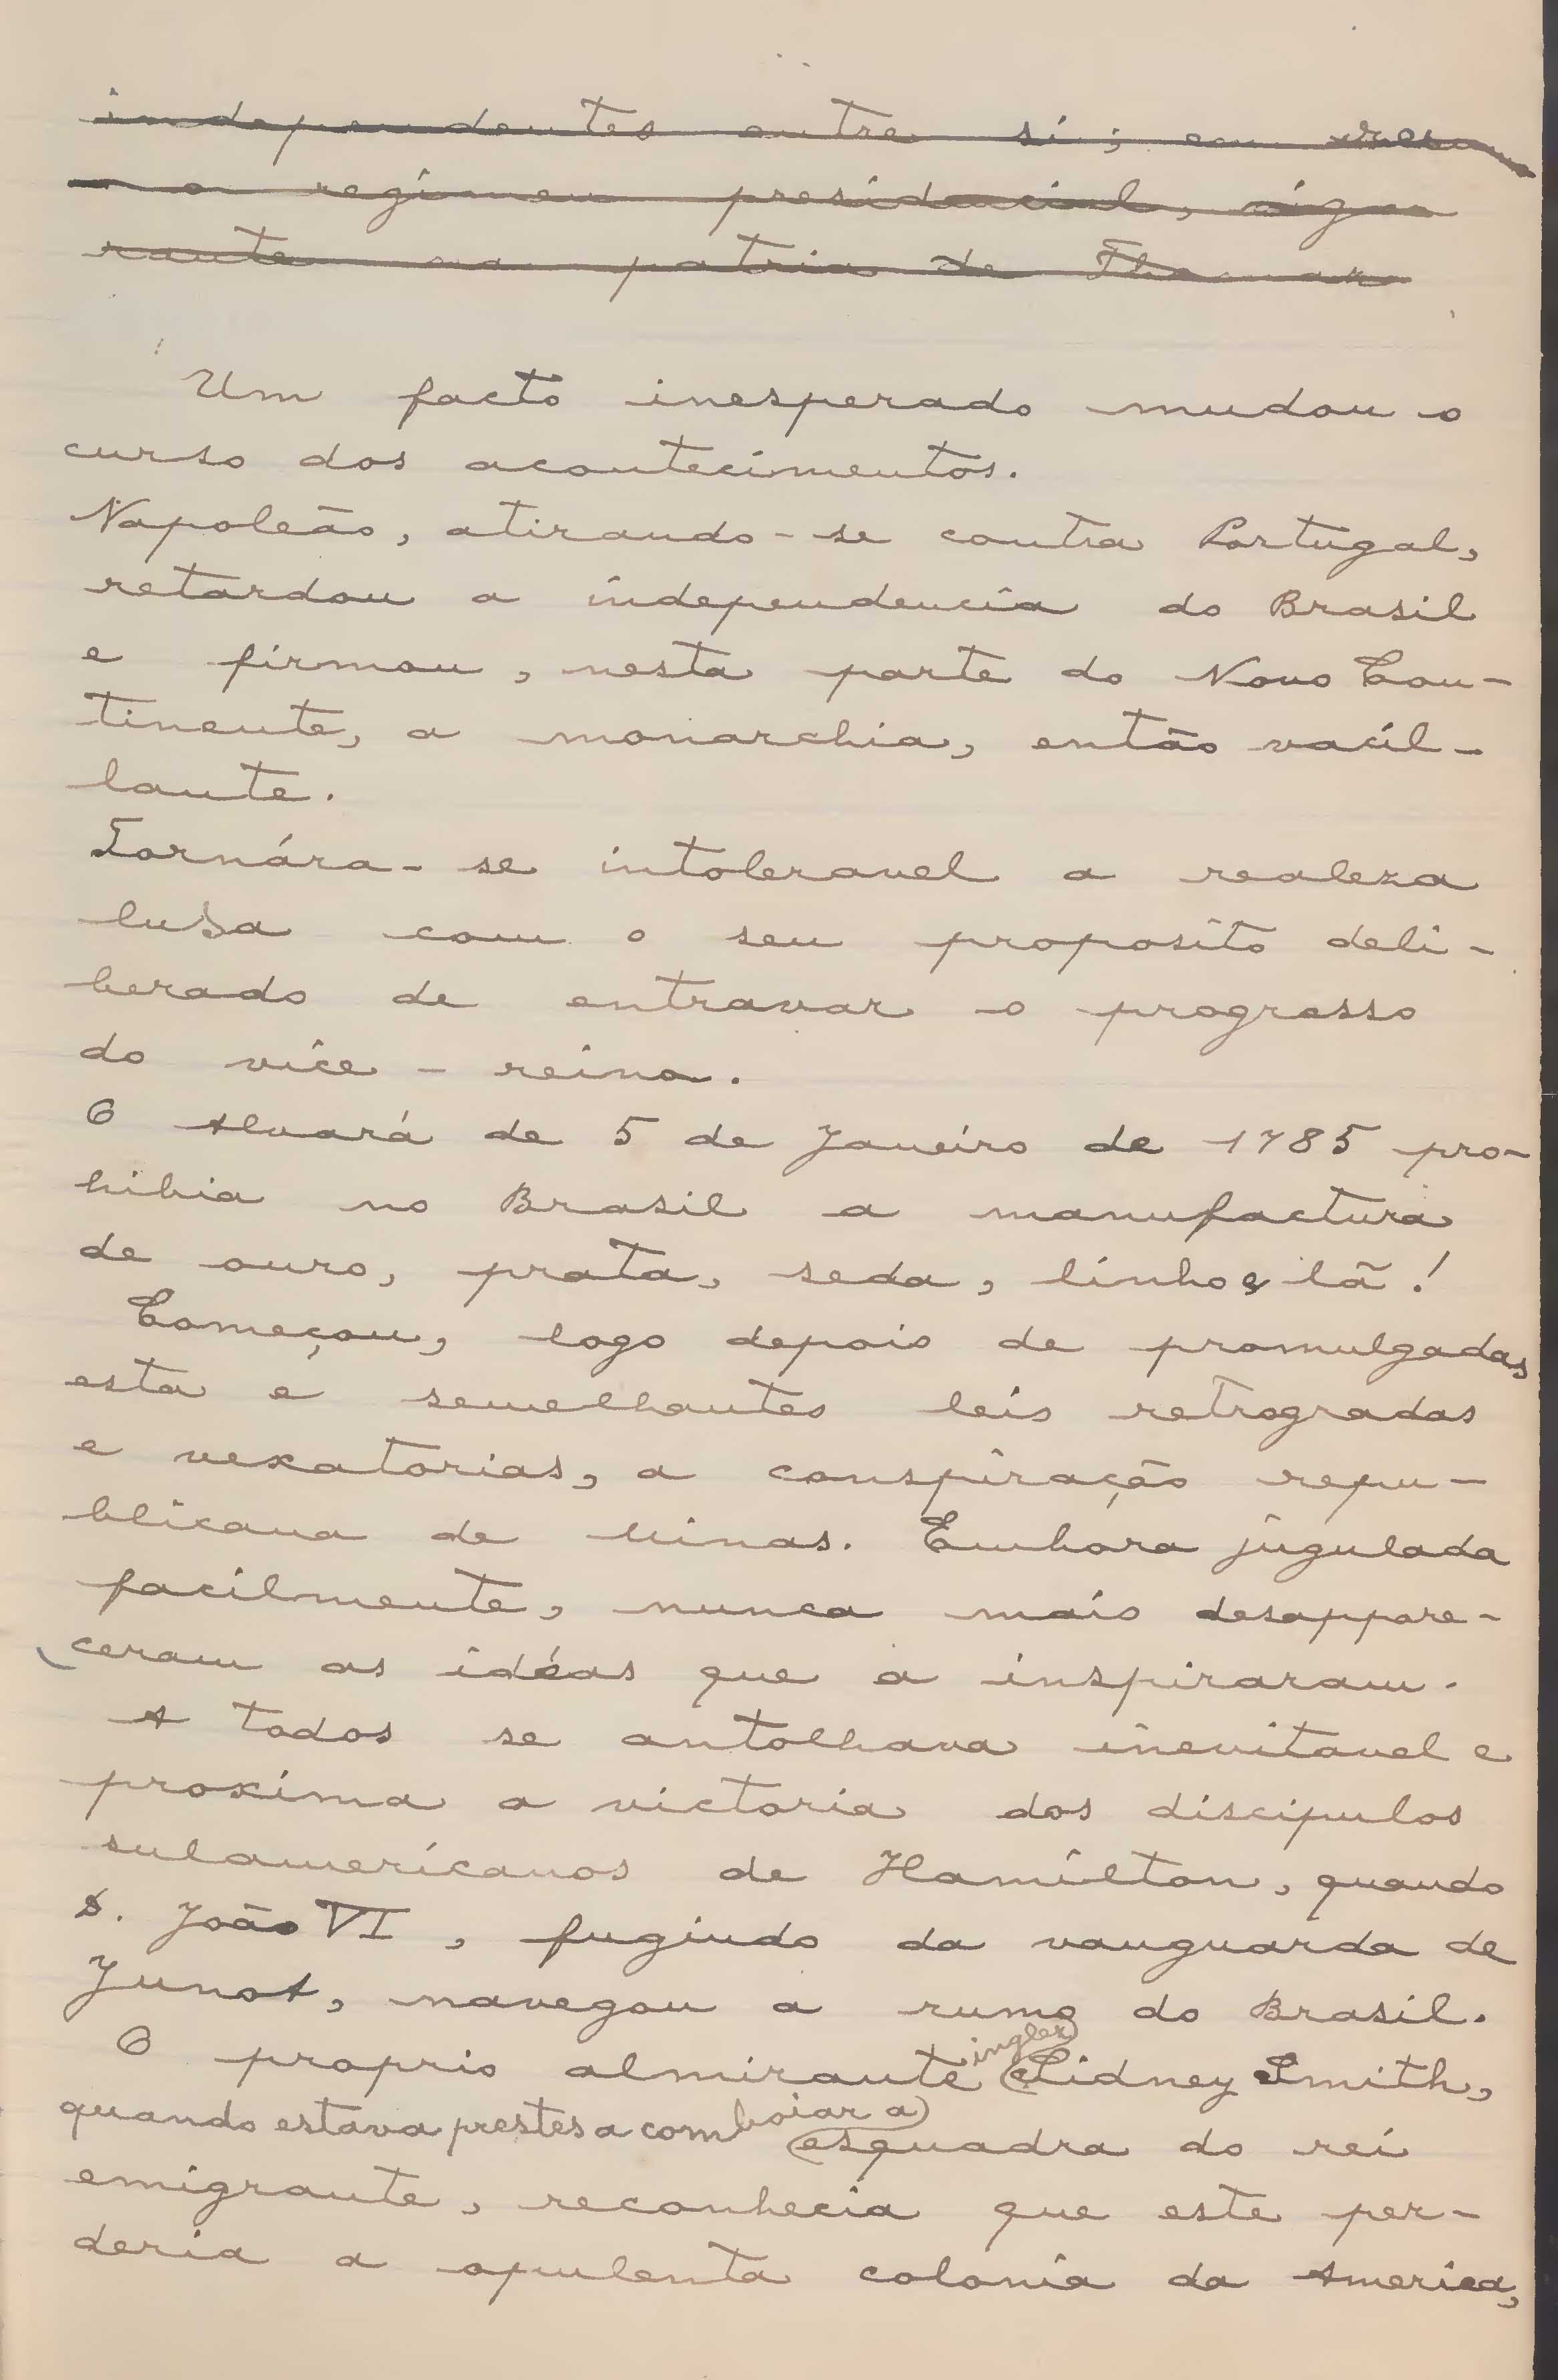 independentes entre si; em
o regimen presidencial, vigo-
rante na patria de
Um facto inesperado mudou o
curso dos acontecimentos.
Napoleão, atirando-se contra Portugal,
retardou a independencia do Brasil
e firmou, nesta parte do Novo Con-
tinente, a monarchia, então vacil-
lante.
Tornára-se intoleravel a realeza
lusa com o seu proposito deli-
berado de entravar o progresso
do vice-reino.
O Alvará de 5 de Janeiro de 1785 pro-
hibia no Brasil a manufactura
de ouro, prata, seda, linho e lã!
Começou, logo depois de promulgadas
esta e semelhantes leis retrogradas
e vexatorias, a conspiração repu-
blicana de Minas. Embora jugulada
facilmente, nunca mais desappare-
ceram as idéas que a inspiraram.
A todos se antolhava inevitavel e
proxima a victoria dos discipulos
sulamericanos de Hamilton, quando
D. João VI, fugindo da vanguarda de
Junot, navegou a rumo do Brasil.
O proprio almirante inglez Sidney Smith,
quando estava prestes a comboiar a esquadra do rei
emigrante, reconhecia que este per-
deria a opulenta colonia da America,